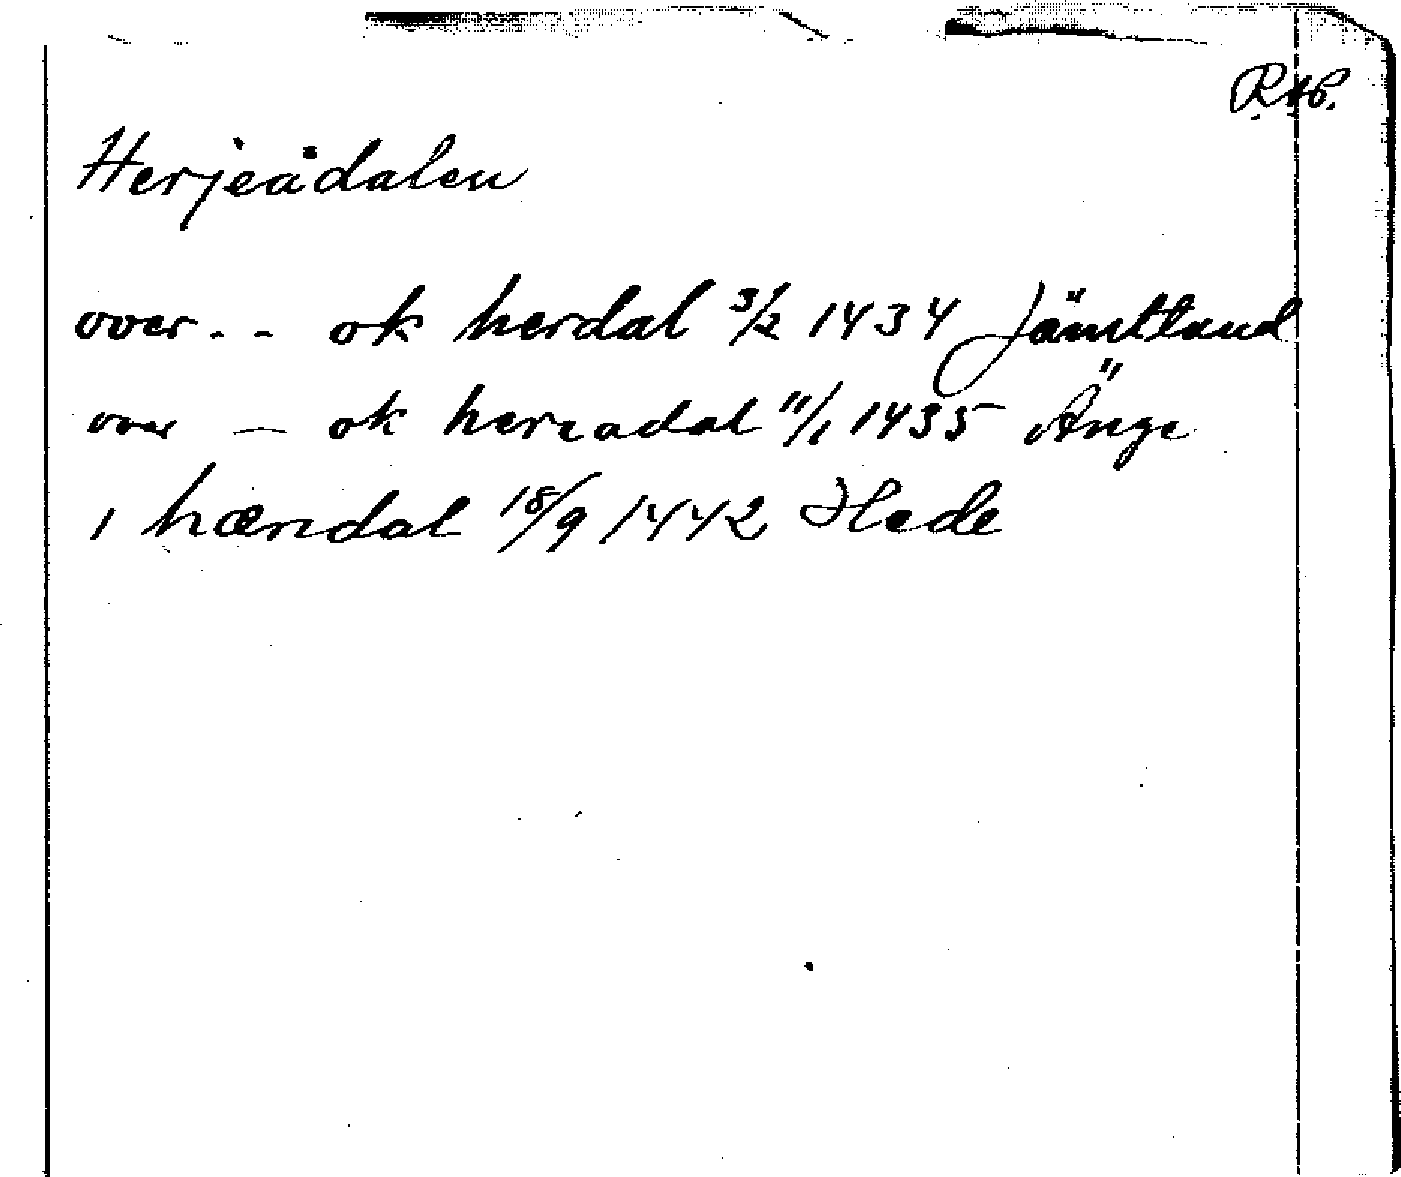 R46.
Herjeådalen
over - - ok herdal 3/2 1434 Jämtland
over — ok hereadal 11/1 1435 Änge
i hærdal 18/9 1442 Hede